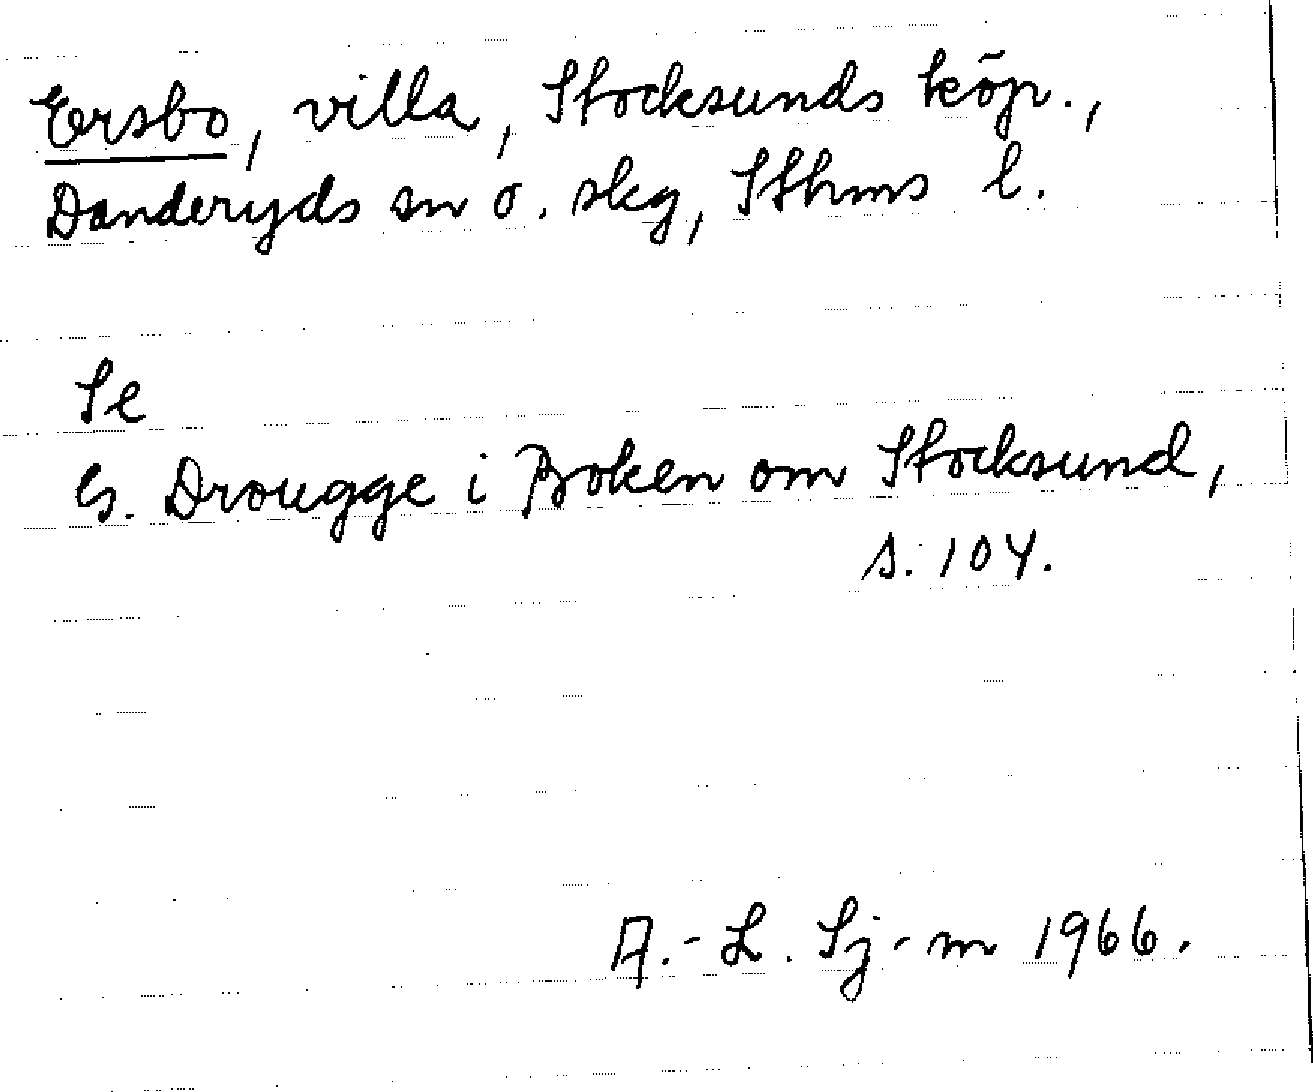 Ersbo, villa, Stocksunds köp.,
Danderyds sn o. skg, Sthms l.
Se
G. Drougge i Boken om Stocksund,
s. 104.
A.-L. Sj-m 1966.